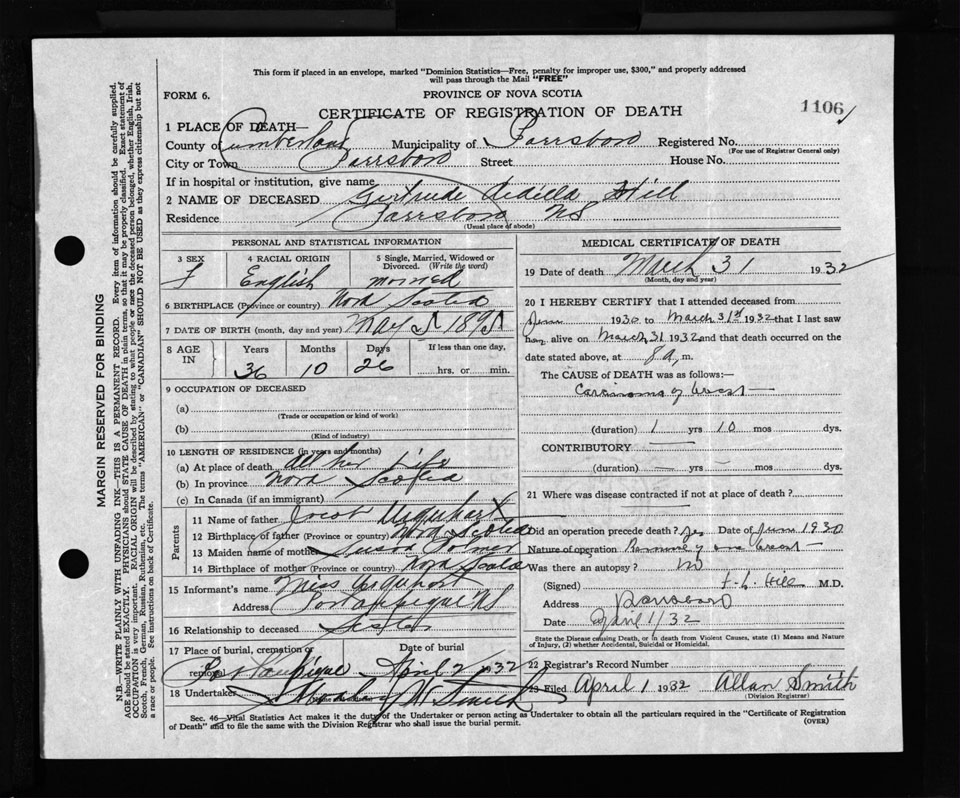 This form if placed in an envelope, marked "Dominion Statistics—Free, penalty for improper use, $300," and properly addressed
will pass through the Mail "FREE"
FORM 6.
PROVINCE OF NOVA SCOTIA
CERTIFICATE OF REGISTRATION OF DEATH
1106
1 PLACE OF DEATH—
County of Cumberland Municipality of Parrsboro Registered No.
(For use of Registrar General only)
City or Town Parrsboro Street House No.
If in hospital or institution, give name
2 NAME OF DECEASED Gertrude Hill
Residence Parrsboro NS
(Usual place of abode)
PERSONAL AND STATISTICAL INFORMATION
3 SEX 4 RACIAL ORIGIN 5 Single, Married, Widowed or
Divorced. (Write the word)
f English married
6 BIRTHPLACE (Province or country) Nova Scotia
7 DATE OF BIRTH (month, day and year) May 5 1895
8 AGE IN Years Months Days If less than one day,
36 10 26 hrs. or min.
9 OCCUPATION OF DECEASED
(a)
(Trade or occupation or kind of work)
(b)
(Kind of industry)
10 LENGTH OF RESIDENCE (in years and months)
(a) At place of death All her Life
(b) In province Nova Scotia
(c) In Canada (if an immigrant)
Parents
11 Name of father Jacob Urquhart
12 Birthplace of father (Province or country) Nova Scotia
13 Maiden name of mother Susan
14 Birthplace of mother (Province or country) Nova Scotia
15 Informant's name Miss Urquhart
Address Portaupique NS
16 Relationship to deceased Sister
17 Place of burial, cremation or
removal Date of burial
Portaupique April 2 1932
18 Undertaker Smith
MEDICAL CERTIFICATE OF DEATH
19 Date of death March 31 1932
(Month, day and year)
20 I HEREBY CERTIFY that I attended deceased from
June 1930 to March 31st 1932 that I last saw
her alive on March 31 1932 and that death occurred on the
date stated above, at 8 a m.
The CAUSE of DEATH was as follows:—
Carcinoma of breast —
(duration) 1 yrs 10 mos dys.
CONTRIBUTORY —
(duration) — yrs — mos dys.
21 Where was disease contracted if not at place of death?
Did an operation precede death? Yes Date of June 1930
Nature of operation Removal of one breast —
Was there an autopsy? no
(Signed) F. L. Hill M.D.
Address Parrsboro
Date April 1/32
State the Disease causing Death, or in death from Violent Causes, state (1) Means and Nature
of Injury, (2) whether Accidental, Suicidal or Homicidal.
22 Registrar's Record Number
23 Filed April 1 1932 Allan Smith
(Division Registrar)
Sec. 46—Vital Statistics Act makes it the duty of the Undertaker or person acting as Undertaker to obtain all the particulars required in the "Certificate of Registration
of Death" and to file the same with the Division Registrar who shall issue the burial permit.
(OVER)
MARGIN RESERVED FOR BINDING
N.B.—WRITE PLAINLY WITH UNFADING INK—THIS IS A PERMANENT RECORD. Every item of information should be carefully supplied.
AGE should be stated EXACTLY. PHYSICIANS should STATE CAUSE OF DEATH in plain terms, so that it may be properly classified. Exact statement of
OCCUPATION is very important. RACIAL ORIGIN will be described by stating to what people or race the deceased person belonged, whether English, Irish,
Scotch, French, German, Russian, Ruthenian, etc. The terms "AMERICAN" or "CANADIAN" SHOULD NOT BE USED as they express citizenship but not
a race or people. See instructions on back of Certificate.